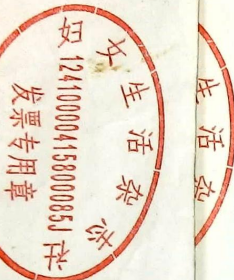 妇女生活杂志社
12410000415800085J
发票专用章
生活杂